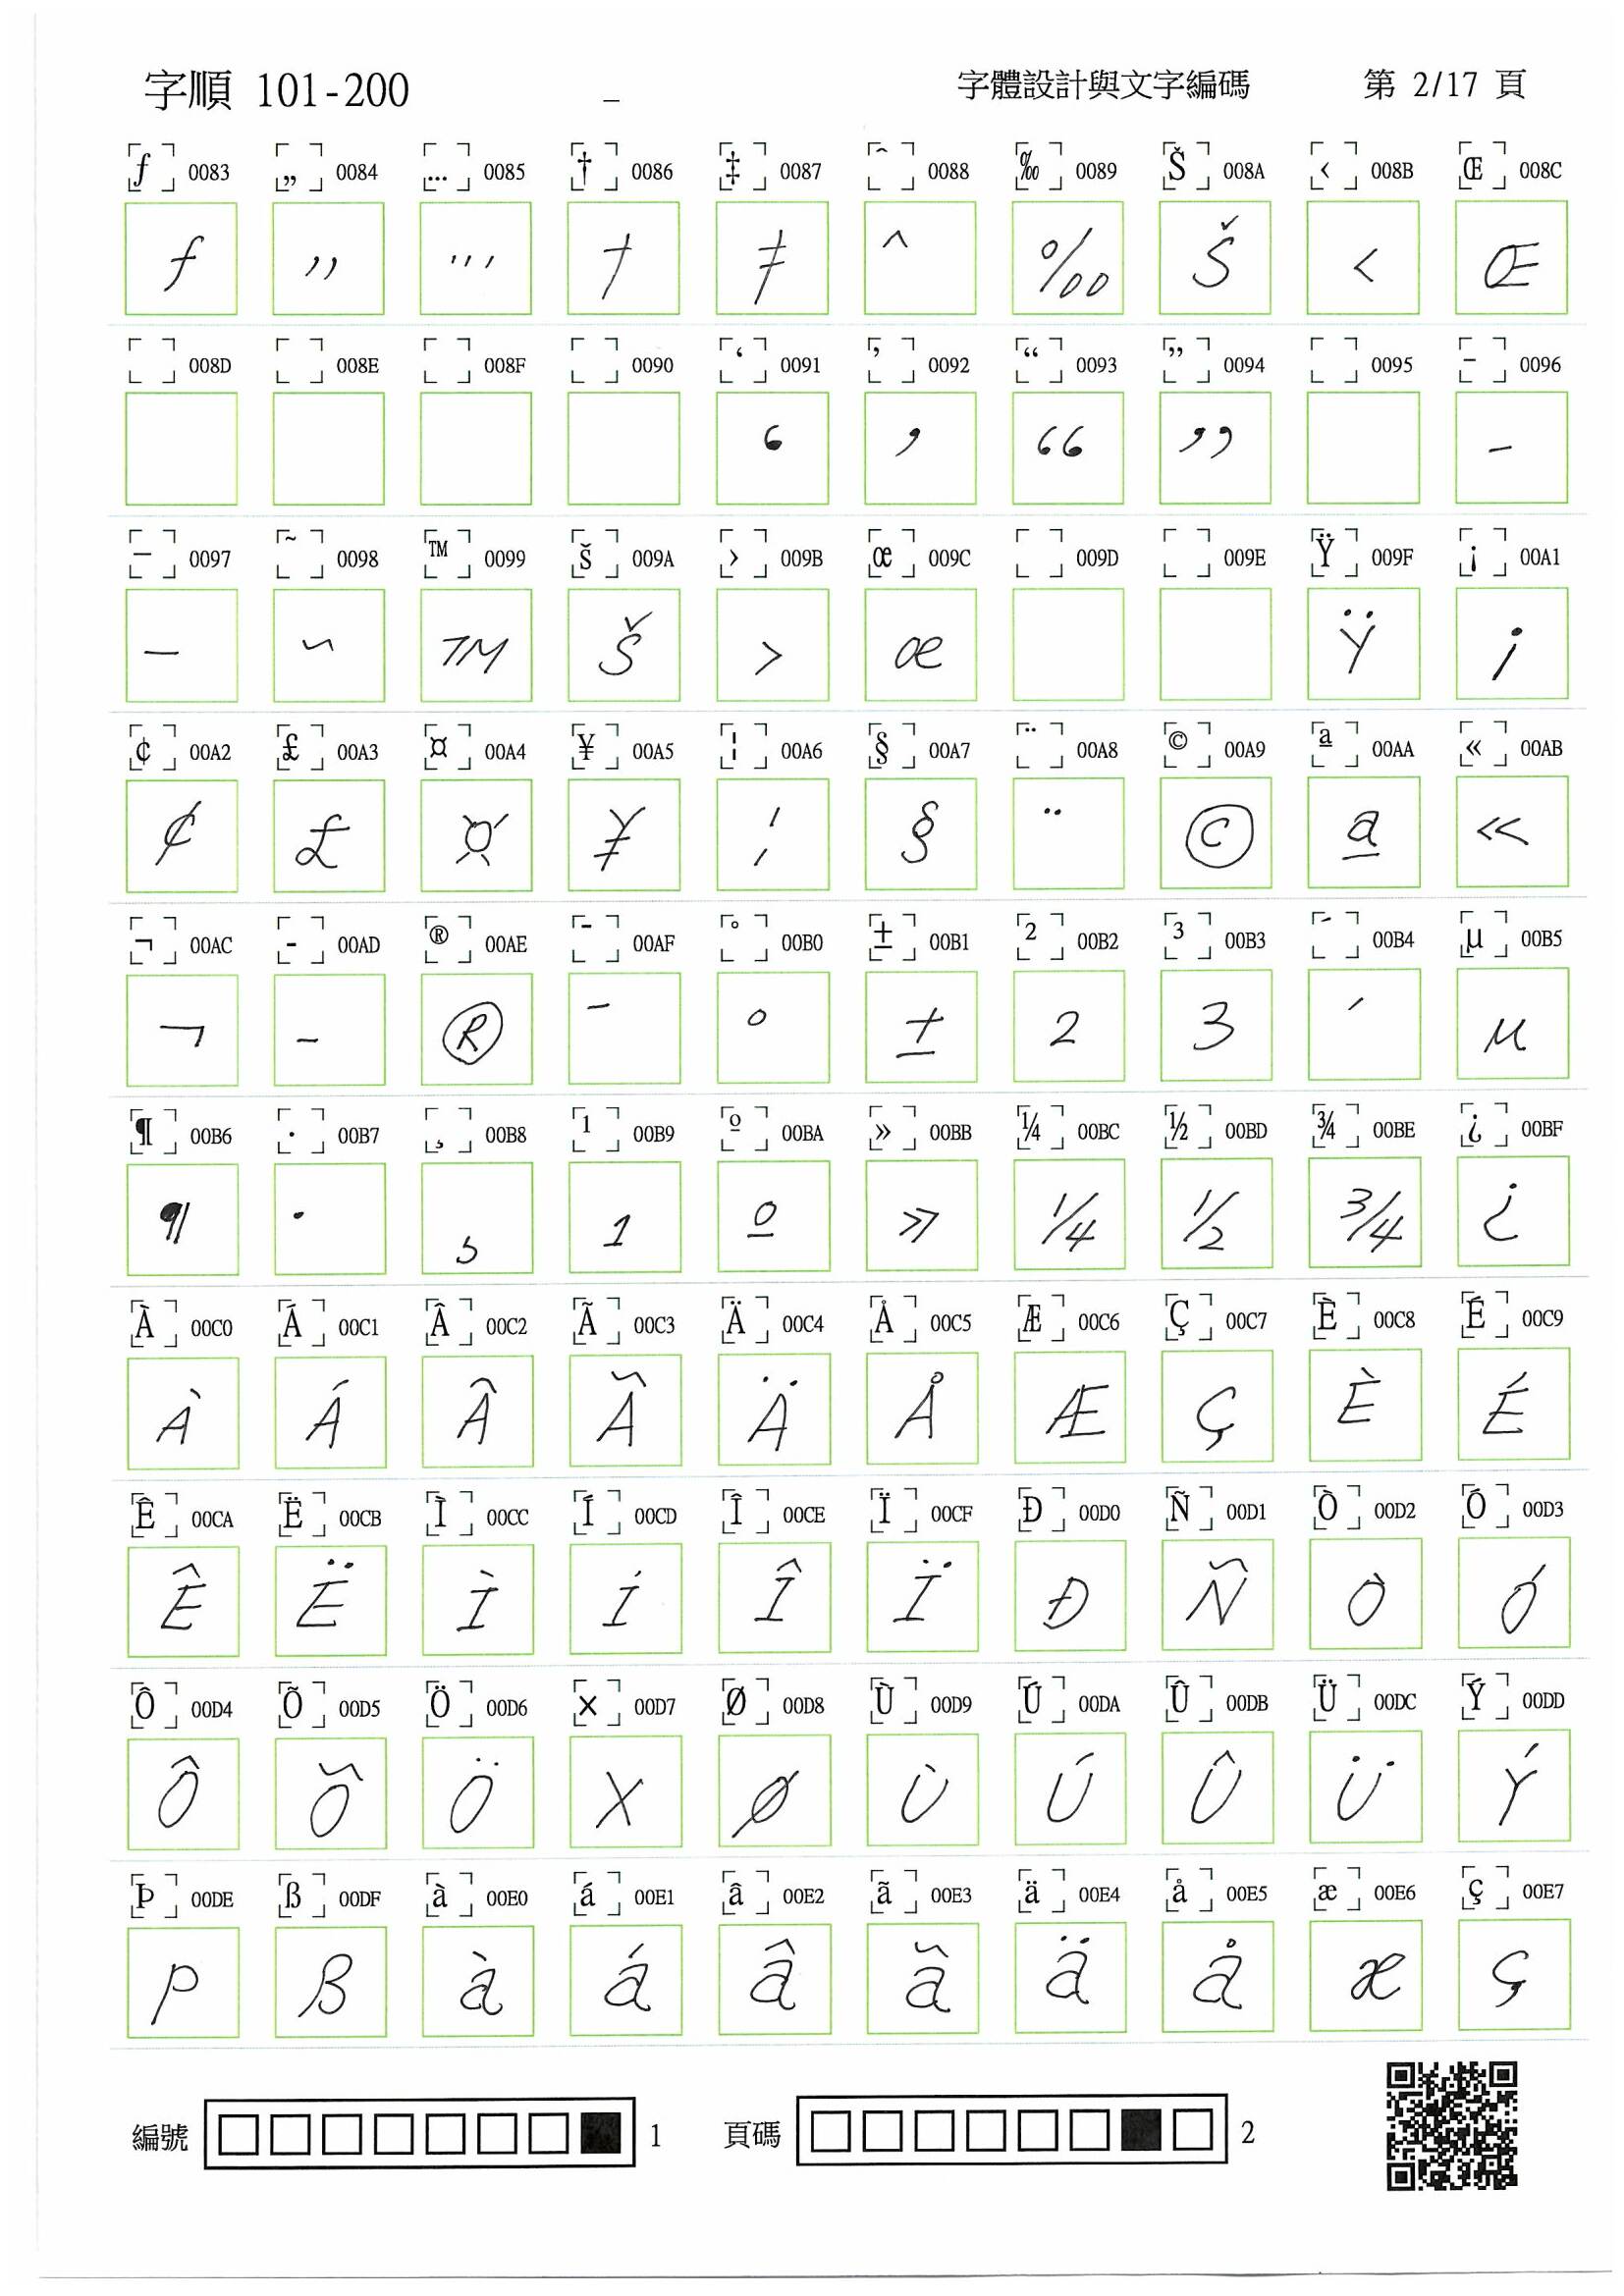 字順 101-200 _ 字體設計與文字編碼 第 2/17 頁
ƒ 0083 „ 0084 … 0085 † 0086 ‡ 0087 ˆ 0088 ‰ 0089 Š 008A ‹ 008B Œ 008C
ƒ „ … † ‡ ˆ ‰ Š ‹ Œ
008D 008E 008F 0090 ‘ 0091 ’ 0092 “ 0093 ” 0094 0095 – 0096
‘ ’ “ ” –
— 0097 ˜ 0098 ™ 0099 š 009A › 009B œ 009C 009D 009E Ÿ 009F ¡ 00A1
— ˜ ™ š › œ Ÿ ¡
¢ 00A2 £ 00A3 ¤ 00A4 ¥ 00A5 ¦ 00A6 § 00A7 ¨ 00A8 © 00A9 ª 00AA « 00AB
¢ £ ¤ ¥ ¦ § ¨ © ª «
¬ 00AC - 00AD ® 00AE ¯ 00AF ° 00B0 ± 00B1 ² 00B2 ³ 00B3 ´ 00B4 µ 00B5
¬ - ® ¯ ° ± 2 3 ´ µ
¶ 00B6 · 00B7 ¸ 00B8 ¹ 00B9 º 00BA » 00BB ¼ 00BC ½ 00BD ¾ 00BE ¿ 00BF
¶ · ¸ 1 º » ¼ ½ ¾ ¿
À 00C0 Á 00C1 Â 00C2 Ã 00C3 Ä 00C4 Å 00C5 Æ 00C6 Ç 00C7 È 00C8 É 00C9
À Á Â Ã Ä Å Æ Ç È É
Ê 00CA Ë 00CB Ì 00CC Í 00CD Î 00CE Ï 00CF Ð 00D0 Ñ 00D1 Ò 00D2 Ó 00D3
Ê Ë Ì Í Î Ï Ð Ñ Ò Ó
Ô 00D4 Õ 00D5 Ö 00D6 × 00D7 Ø 00D8 Ù 00D9 Ú 00DA Û 00DB Ü 00DC Ý 00DD
Ô Õ Ö × Ø Ù Ú Û Ü Ý
Þ 00DE ß 00DF à 00E0 á 00E1 â 00E2 ã 00E3 ä 00E4 å 00E5 æ 00E6 ç 00E7
Þ ß à á â ã ä å æ ç
編號 1 頁碼 2